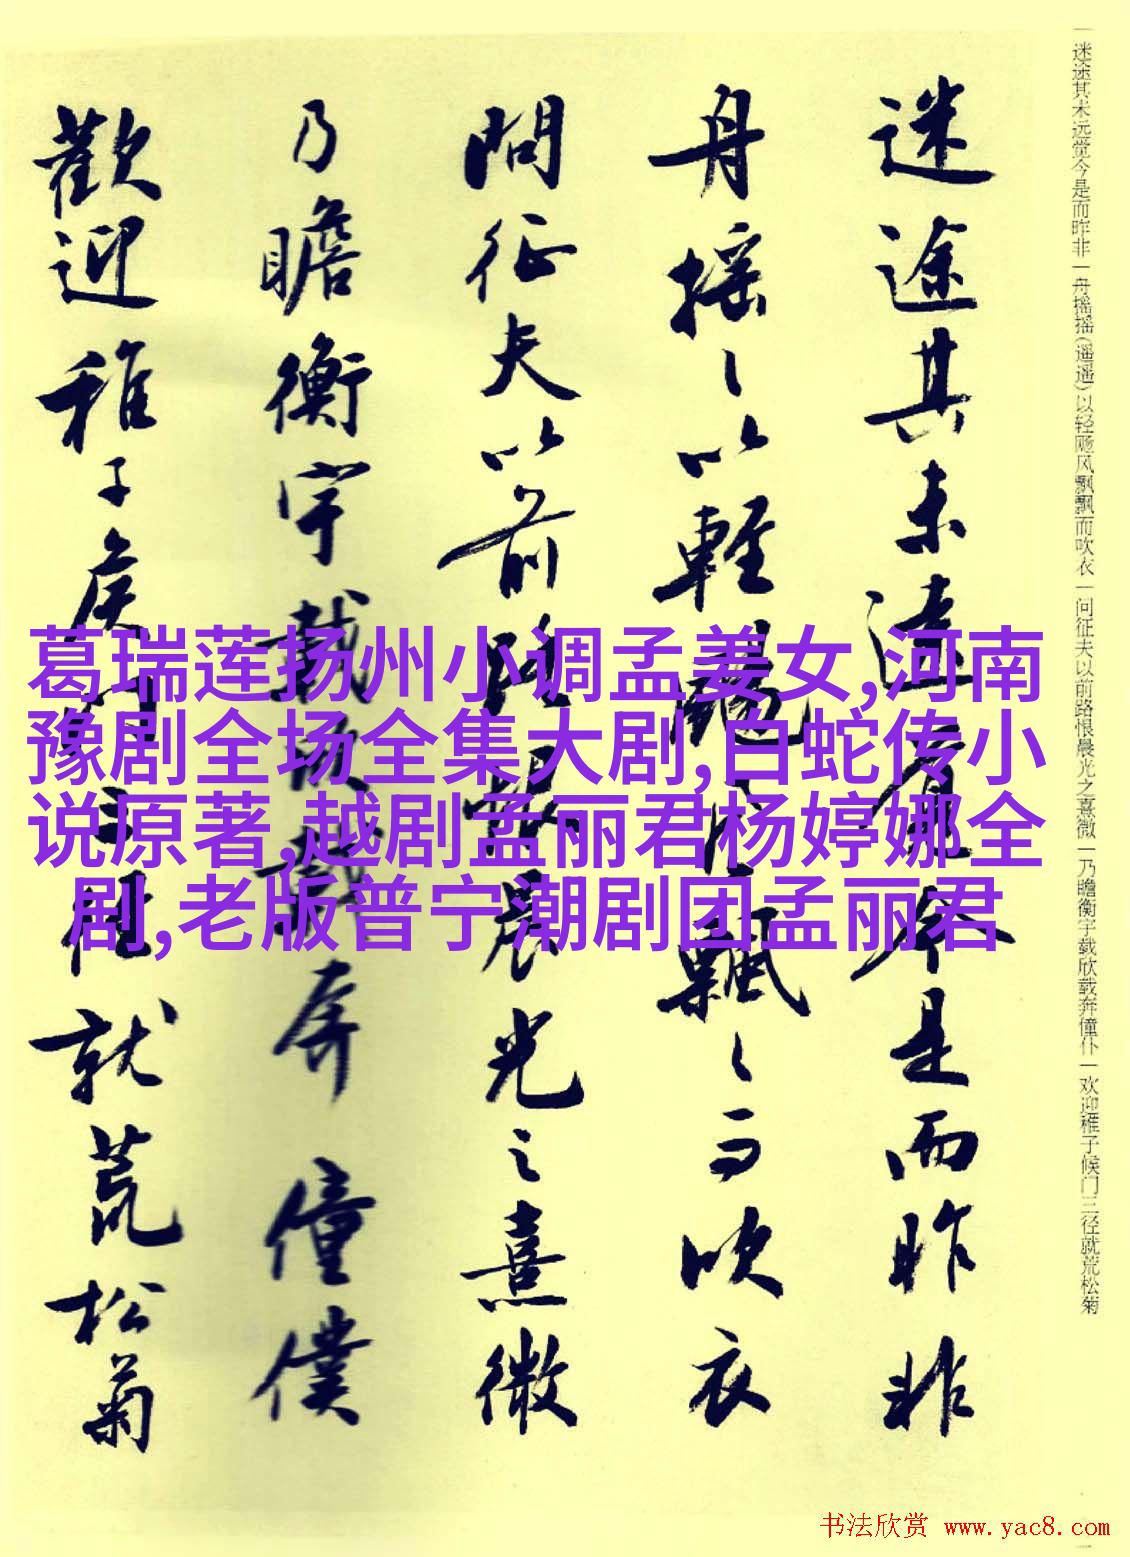 迷途其未远觉今是而昨非
舟摇〻以輕颺风飄〻而吹衣
問征夫以前路恨晨光之熹微
乃瞻衡宇載欣載奔僮僕
歡迎稚子矦门三径就荒松菊
一迷途其未远觉今是而昨非一舟摇摇(遥遥)以轻飏风飘飘而吹衣一问征夫以前路恨晨光之熹微一乃瞻衡宇载欣载奔僮仆一欢迎稚子候门三径就荒松菊
葛瑞莲扬州小调孟姜女,河南
豫剧全场全集大剧,白蛇传小
说原著,越剧孟丽君杨婷娜全
剧,老版普宁潮剧团孟丽君
书法欣赏 www.yac8.com